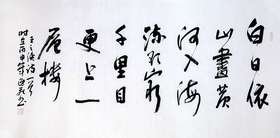 白日依
山盡黃
河入海
流欲窮
千里目
更上一
層樓
王之渙詩一首
時在丙申年